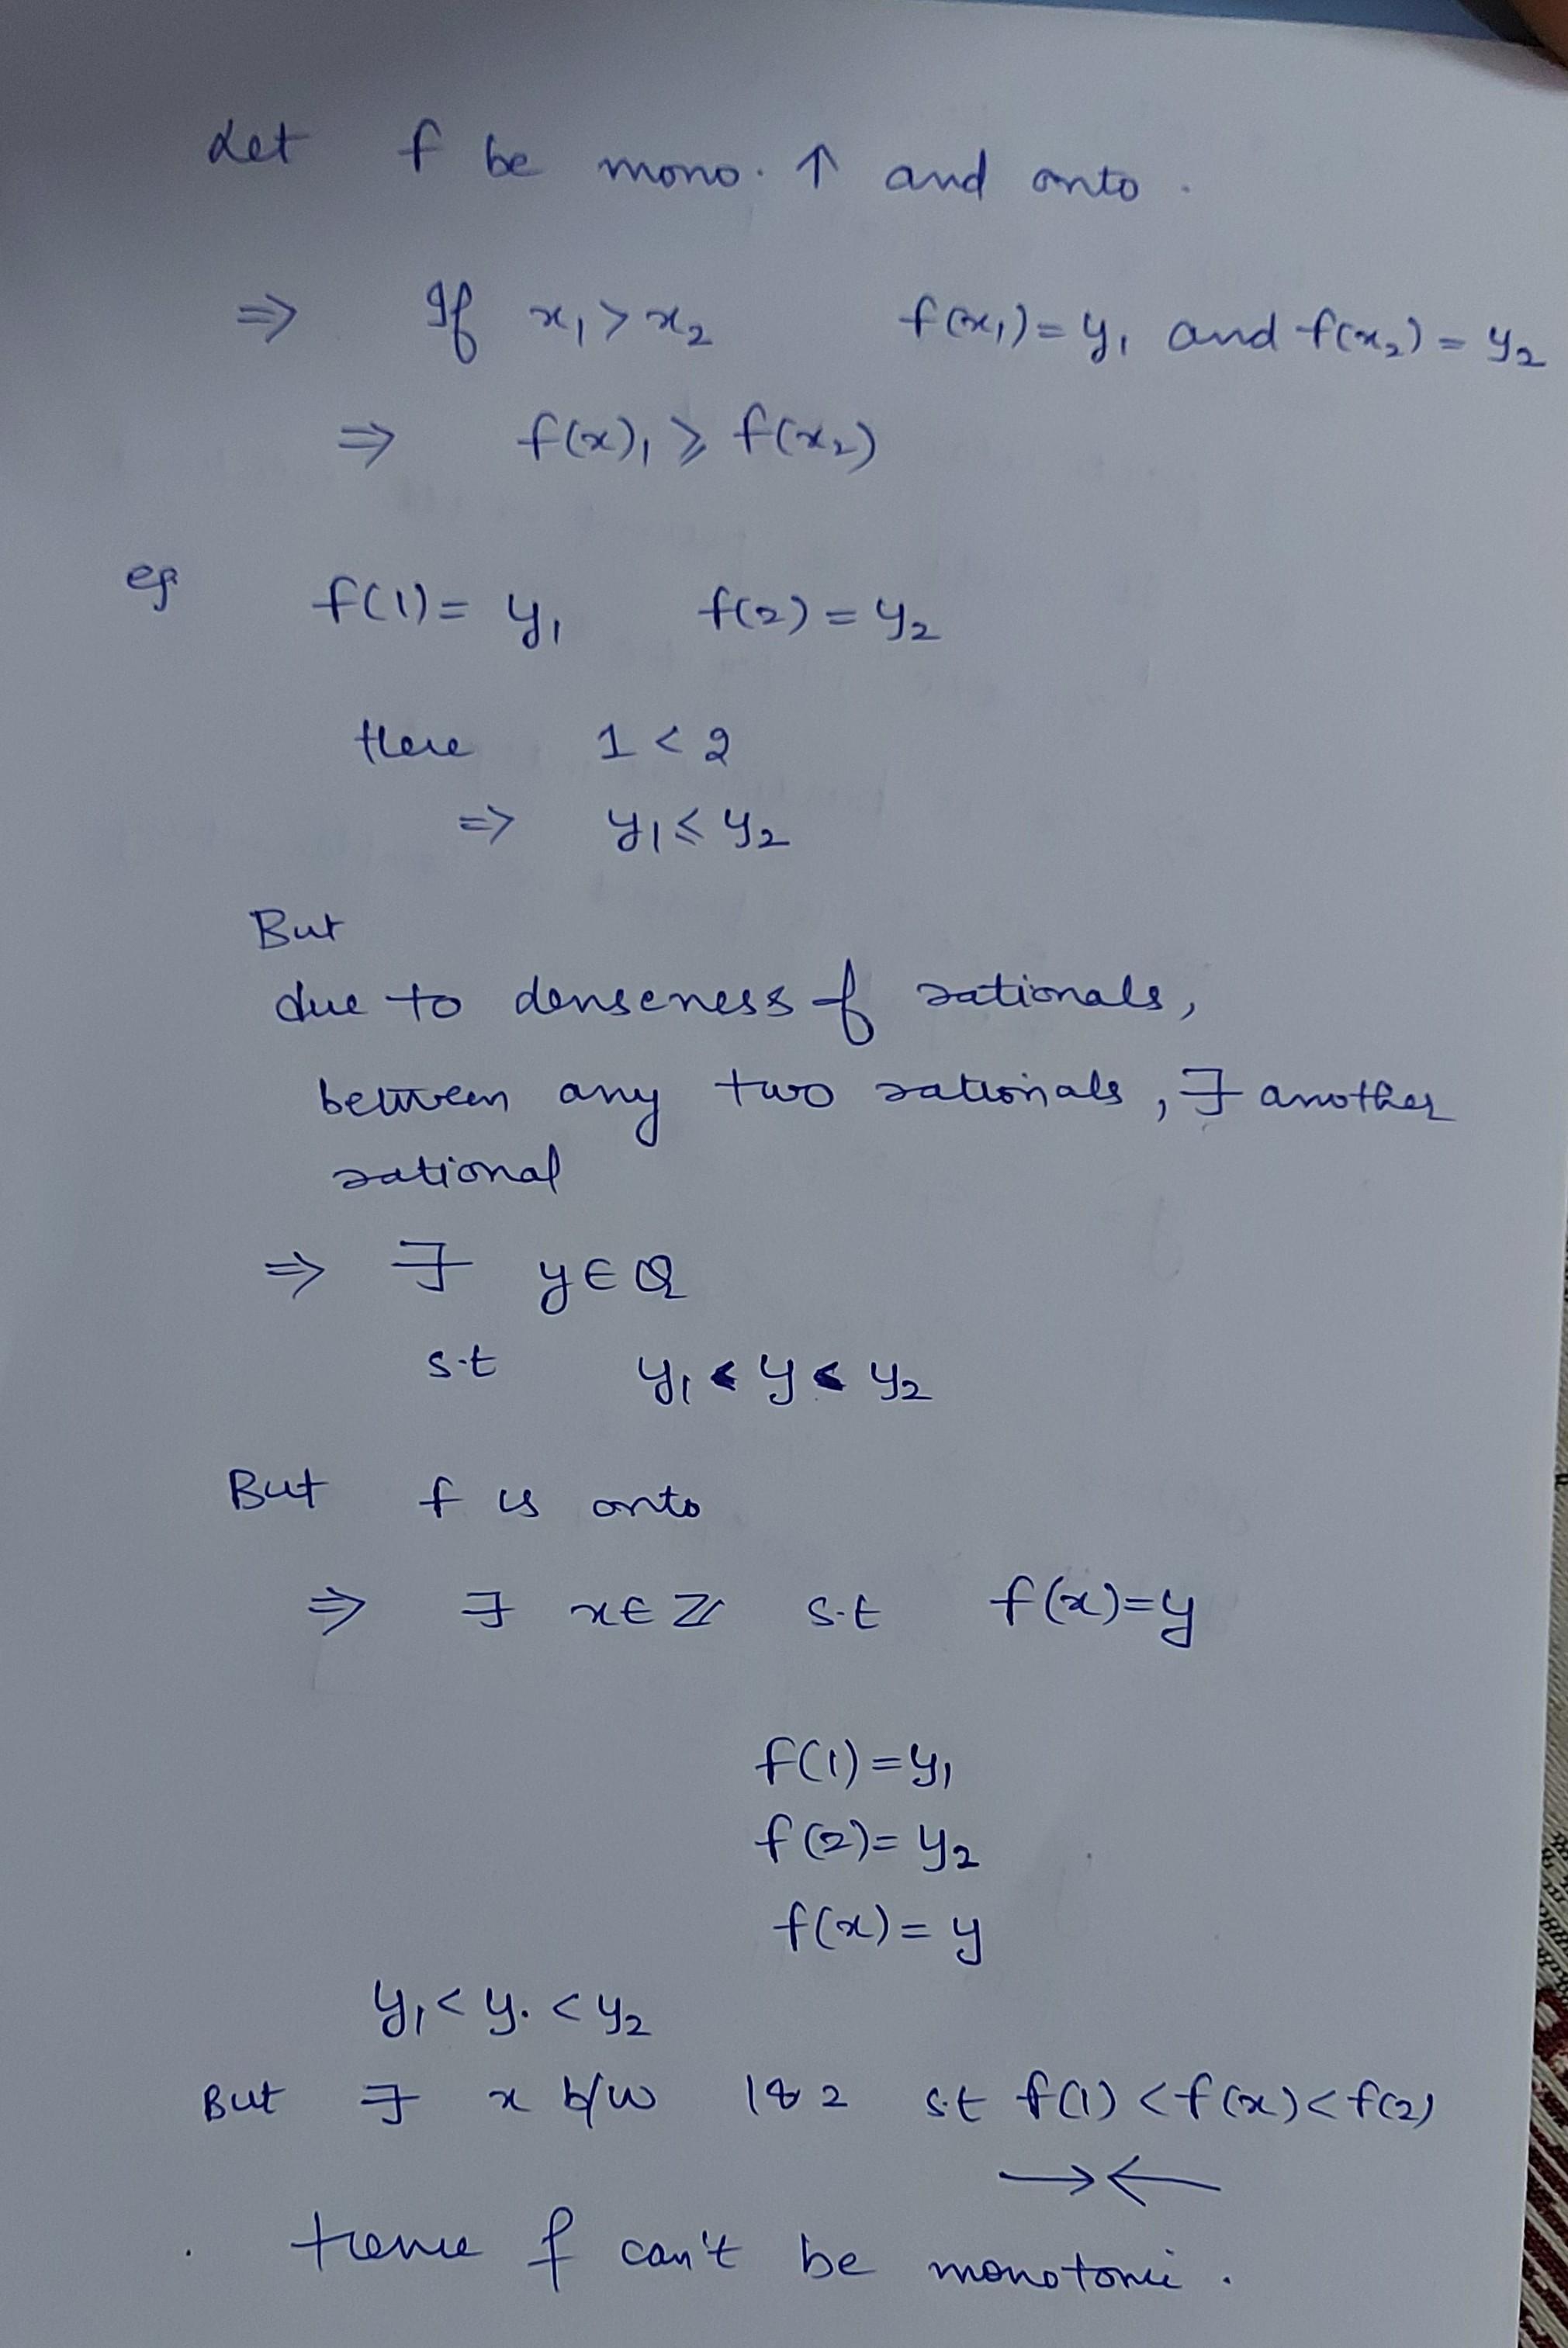 Let f be mono. ↑ and onto.
⇒ If x₁ > x₂ f(x₁) = y₁ and f(x₂) = y₂
⇒ f(x)₁ ⩾ f(x₂)
eg f(1) = y₁ f(2) = y₂
Here 1 < 2
⇒ y₁ ⩽ y₂
But
due to denseness of rationals,
between any two rationals, ∃ another
rational
⇒ ∃ y ∈ Q
s.t y₁ < y < y₂
But f is onto
⇒ ∃ x ∈ ℤ s.t f(x) = y
f(1) = y₁
f(2) = y₂
f(x) = y
y₁ < y. < y₂
But ∃ x b/w 1 & 2 s.t f(1) < f(x) < f(2)
→←
Hence f can't be monotonic.